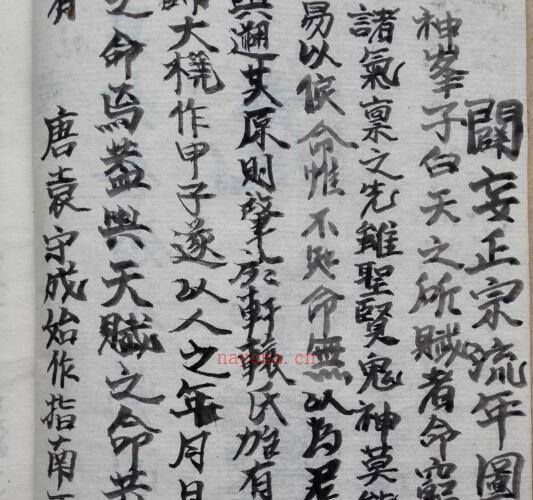 闢妄正宗流年圖
神峯子曰天之所賦者命
諸氣稟之先雖聖賢鬼神莫能
易以俟命惟不知命無以為君
與遡其原則肇於軒轅氏始有
大橈作甲子遂以人之年月日
之命焉蓋與天賦之命共
有 唐袁守成始作指南
nayona.cn